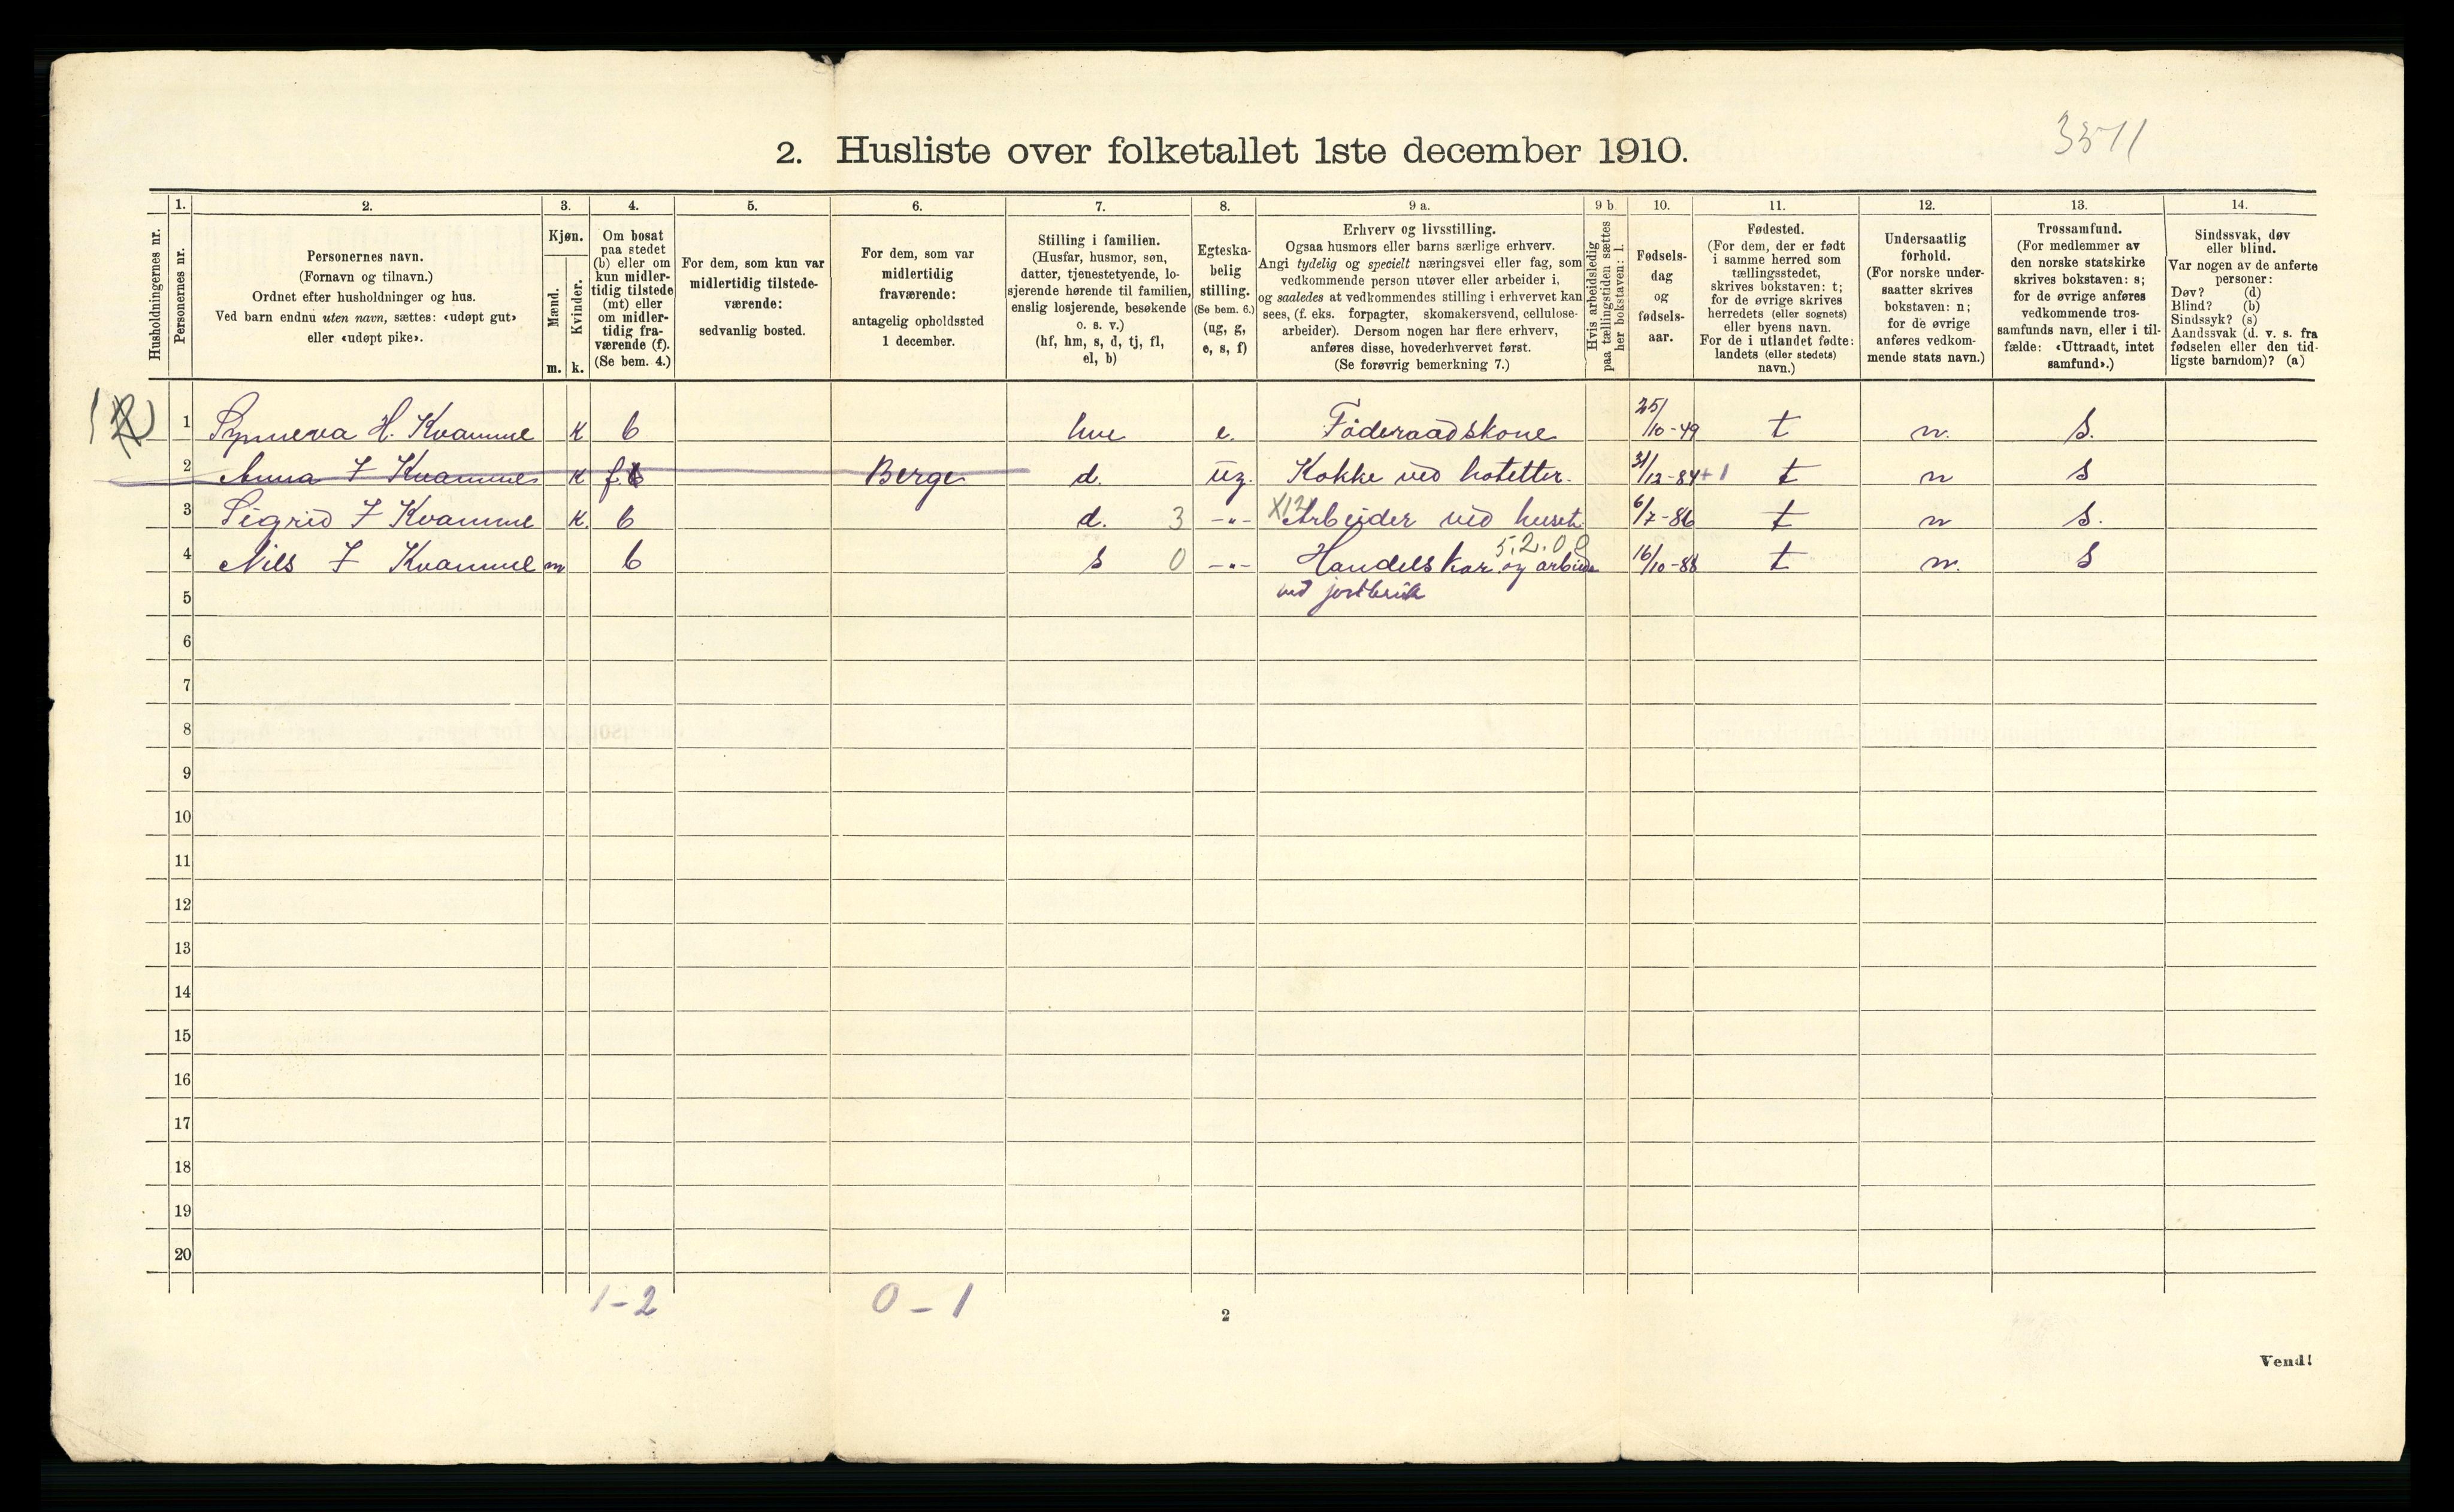 3511
2. Husliste over folketallet 1ste december 1910.
Husholdningernes nr.
1.
Personernes nr.
2.
Personernes navn.
(Fornavn og tilnavn.)
Ordnet efter husholdninger og hus.
Ved barn endnu uten navn, sættes: «udøpt gut»
eller «udøpt pike».
3.
Kjøn.
Mænd.
Kvinder.
m. k.
4.
Om bosat
paa stedet
(b) eller om
kun midler-
tidig tilstede
(mt) eller
om midler-
tidig fra-
værende (f).
(Se bem. 4.)
5.
For dem, som kun var
midlertidig tilstede-
værende:
sedvanlig bosted.
6.
For dem, som var
midlertidig
fraværende:
antagelig opholdssted
1 december.
7.
Stilling i familien.
(Husfar, husmor, søn,
datter, tjenestetyende, lo-
sjerende hørende til familien,
enslig losjerende, besøkende
o. s. v.)
(hf, hm, s, d, tj, fl,
el, b)
8.
Egteska-
belig
stilling.
(Se bem. 6.)
(ug, g,
e, s, f)
9 a.
Erhverv og livsstilling.
Ogsaa husmors eller barns særlige erhverv.
Angi tydelig og specielt næringsvei eller fag, som
vedkommende person utøver eller arbeider i,
og saaledes at vedkommendes stilling i erhvervet kan
sees, (f. eks. forpagter, skomakersvend, cellulose-
arbeider). Dersom nogen har flere erhverv,
anføres disse, hovederhvervet først.
(Se forøvrig bemerkning 7.)
9 b.
Hvis arbeidsledig
paa tællingstiden sættes
her bokstaven: l.
10.
Fødsels-
dag
og
fødsels-
aar.
11.
Fødested.
(For dem, der er født
i samme herred som
tællingsstedet,
skrives bokstaven: t;
for de øvrige skrives
herredets (eller sognets)
eller byens navn.
For de i utlandet fødte:
landets (eller stedets)
navn.)
12.
Undersaatlig
forhold.
(For norske under-
saatter skrives
bokstaven: n;
for de øvrige
anføres vedkom-
mende stats navn.)
13.
Trossamfund.
(For medlemmer av
den norske statskirke
skrives bokstaven: s;
for de øvrige anføres
vedkommende tros-
samfunds navn, eller i til-
fælde: «Uttraadt, intet
samfund».)
14.
Sindssvak, døv
eller blind.
Var nogen av de anførte
personer:
Døv? (d)
Blind? (b)
Sindssyk? (s)
Aandssvak (d. v. s. fra
fødselen eller den tid-
ligste barndom)? (a)
1 Synneva H. Kvamme K b hm e. Föderaadskone 25/10-49 t n. S.
2 Anna I Kvamme K f. Berge d. ug. Kokke ved hoteller. 31/12-84 +1 t n S
3 Sigrid I Kvamme K. b d. 3 -"- X12 Arbeider ved huset 6/7-86 t n S.
4 Nils I Kvamme m b s 0 -"- 5.2.00 Handelskar og arbeide 16/10-88 t n. S
5 ved jordbruk
6
7
8
9
10
11
12
13
14
15
16
17
18
19
20
1-2 0-1
2
Vend!